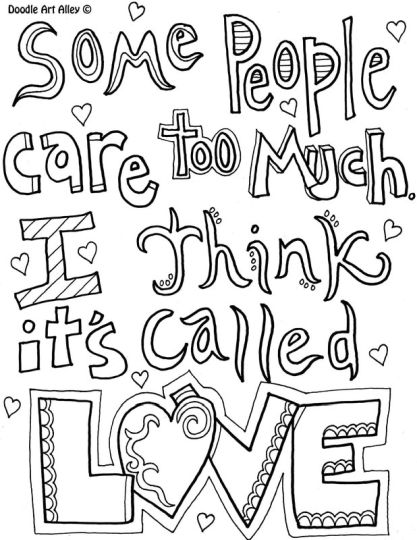 Doodle Art Alley ©
Some People
care too Much.
I think
it's called
LOVE